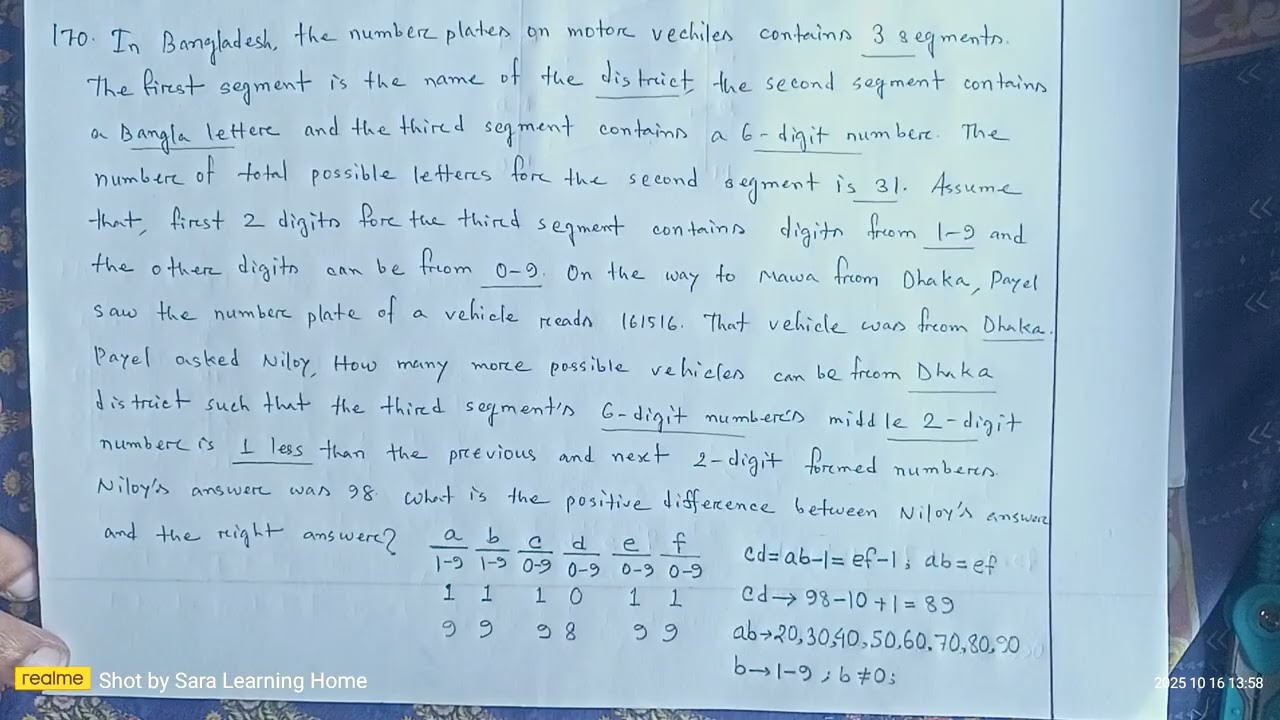 170. In Bangladesh, the number plates on motor vechiles contains 3 segments.
The first segment is the name of the district, the second segment contains
a Bangla letter and the third segment contains a 6-digit number. The
number of total possible letters for the second segment is 31. Assume
that, first 2 digits for the third segment contains digits from 1-9 and
the other digits can be from 0-9. On the way to Mawa from Dhaka, Payel
saw the number plate of a vehicle reads 161516. That vehicle was from Dhaka.
Payel asked Niloy, How many more possible vehicles can be from Dhaka
district such that the third segment's 6-digit number's middle 2-digit
number is 1 less than the previous and next 2-digit formed numbers.
Niloy's answer was 98. What is the positive difference between Niloy's answer
and the right answer?
a b c d e f
1-9 1-9 0-9 0-9 0-9 0-9
1 1 1 0 1 1
9 9 9 8 9 9
cd=ab-1=ef-1; ab=ef
cd→98-10+1=89
ab→20,30,40,50,60,70,80,90
b→1-9; b≠0;
realme Shot by Sara Learning Home
2025 10 16 13:58